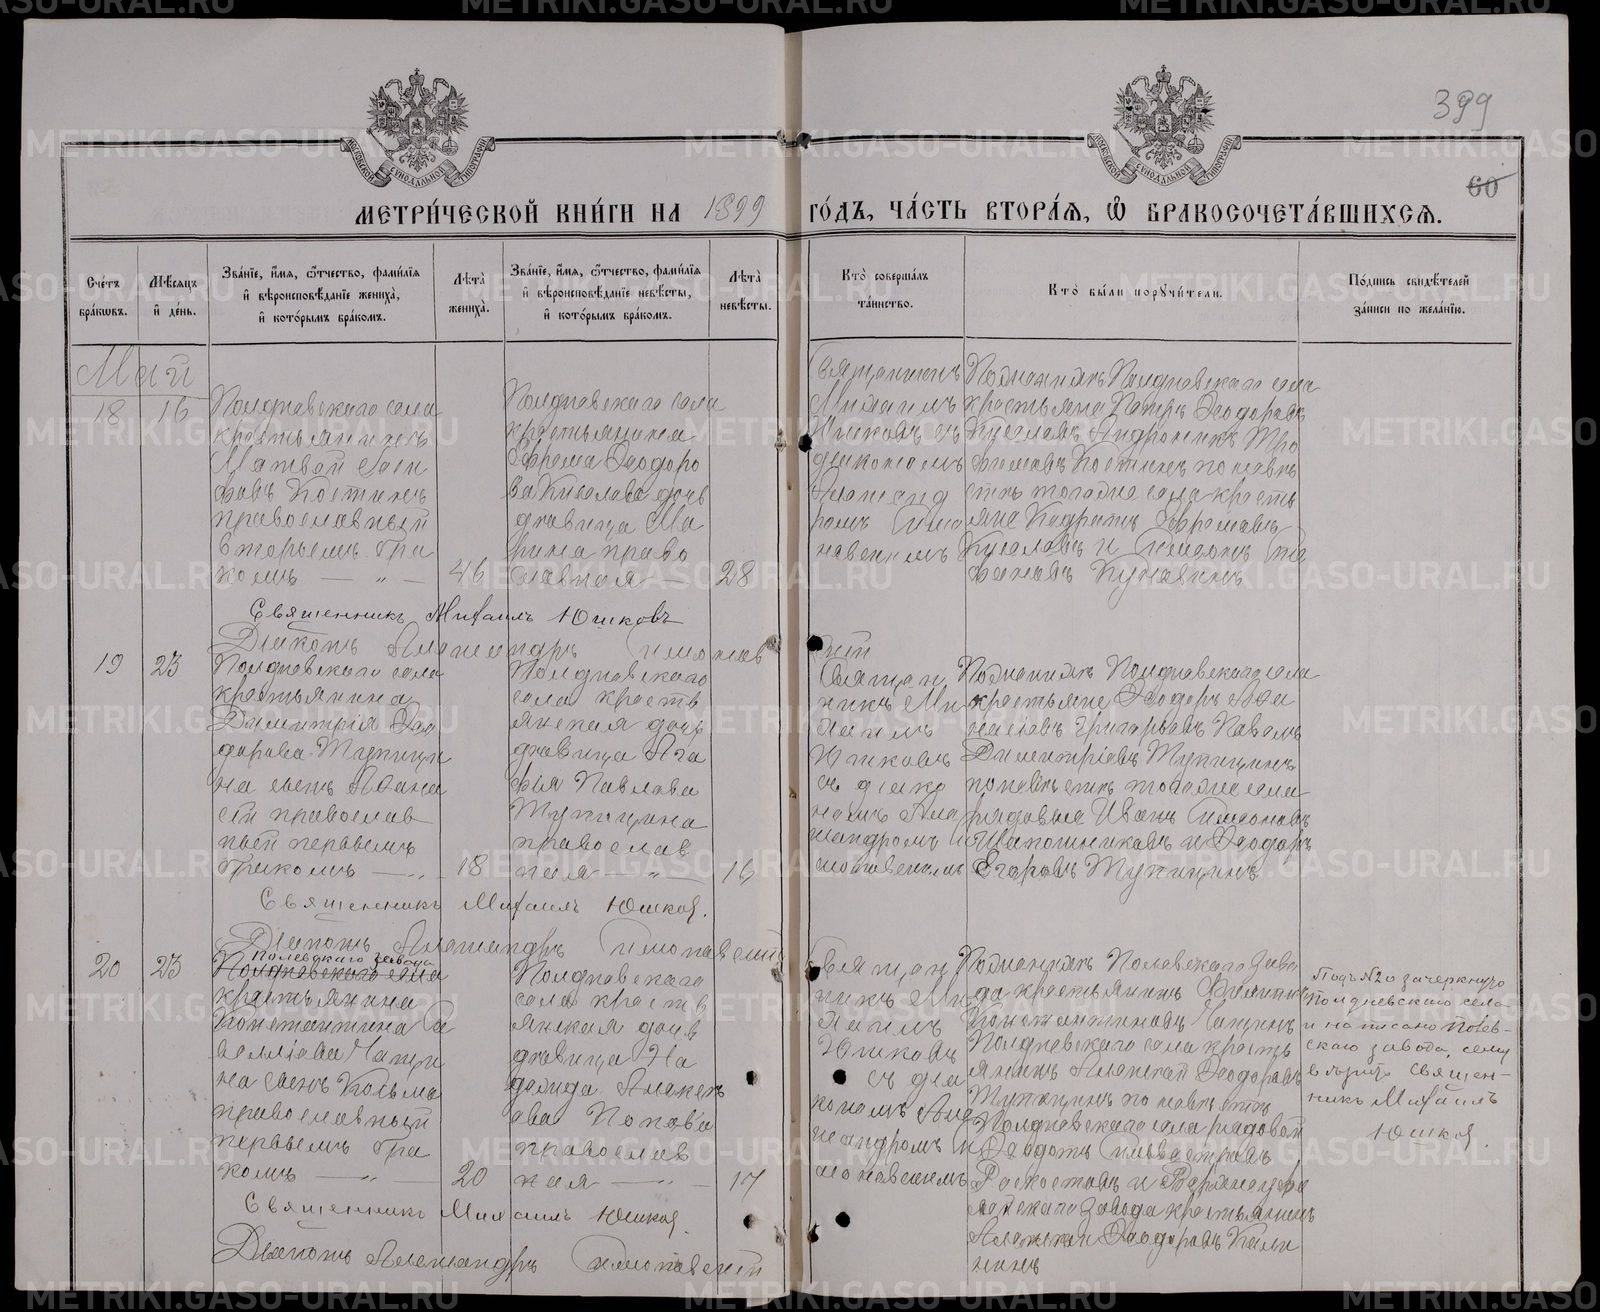 399
60
МЕТРИ́ЧЕСКОЙ КНИ́ГИ НА 1899 ГО́ДЪ, ЧА́СТЬ ВТОРА́Я, Ѽ БРАКОСОЧЕТА́ВШИХСЯ.
Сче́тъ бра́кѡвъ.
Мѣ́сяцъ и҆ де́нь.
Зва́нїе, и҆́мя, ѻ҆́тчество, фами́лїя
и҆ вѣроисповѣ́данїе жениха̀,
и҆ кото́рымъ бра́комъ.
Лѣта̀ жениха̀.
Зва́нїе, и҆́мя, ѻ҆́тчество, фами́лїя
и҆ вѣроисповѣ́данїе невѣ́сты,
и҆ кото́рымъ бра́комъ.
Лѣта̀ невѣ́сты.
Кто̀ соверша́лъ
та́инство.
Кто̀ бы́ли порꙋчи́тели.
По́дпись свидѣ́телей
за́писи по жела́нїю.
Май
18
16
Полдневскаго села
крестьянинъ
Матвей Оси
повъ Костинъ
православный
вторымъ бра
комъ — " —
46
Полдневскаго села
крестьянина
Ефрема Ѳеодоро
ва Киселева дочь
девица Ма
рина право
славная —
28
Священникъ
Михаилъ
Юшковъ съ
діакономъ
Александ
ромъ Симо
новскимъ
Поженихѣ Полдневскаго села
крестьяне Петръ Ѳеодоровъ
Киселевъ Андроникъ Тро
фимовъ Костинъ по невѣ
стѣ тогоже села кресть
яне Кодратъ Ефремовъ
Киселевъ и Симеонъ Сте
фановъ
Священникъ Михаилъ Юшковъ
Діаконъ Александръ Симонов
скій
19
23
Полдневскаго села
крестьянина
Димитрія Ѳео
дорова Тупици
на сынъ Афана
сій православ
ный первымъ
бракомъ — " —
18
Полдневскаго
села кресть
янская дочь
девица Ага
фія Павлова
Тупицина
православ
ная — " —
16
Священ
никъ Ми
хаилъ
Юшковъ
съ діако
номъ Але
ксандромъ Си
моновскимъ
Поженихѣ Полдневскаго села
крестьяне Ѳеодоръ Афа
насіевъ Григорьевъ Павелъ
Димитріевъ Тупицинъ
по невѣстѣ тогоже села
рядовые Иванъ Симеоновъ
Шапошниковъ и Ѳеодоръ
Егоровъ Тупицинъ
Священникъ Михаилъ Юшков.
Діаконъ Александръ Симоновскій
20
23
Полевскаго завода
Полдневскаго села
крестьянина
Константина Са
велліева Чащи
на сынъ Козьма
православный
первымъ бра
комъ — " —
20
Полдневскаго
села кресть
янская дочь
девица На
дежда Алексѣ
ева Попова
православ
ная — " —
17
Священ
никъ Ми
хаилъ
Юшковъ
съ діа
кономъ Але
ксандромъ Си
моновскимъ
Поженихѣ Полевскаго заво
да крестьянинъ
Константиновъ Чащинъ
Полдневскаго села кресть
янинъ Алексѣй Ѳеодоровъ
Тупицинъ по невѣстѣ
Полдневскаго села рядовой
Ѳеодотъ Сильвестровъ
и
завода крестьянинъ
Алексѣй Ѳеодоровъ Кали
нинъ
Подъ № 20 зачеркнуто
Полдневскаго села
и написано Полев-
скаго завода, сему
вѣрить Священ-
никъ Михаилъ
Юшков.
Священникъ Михаилъ Юшков.
Діаконъ Александръ Симоновскій
METRIKI.GASO-URAL.RU